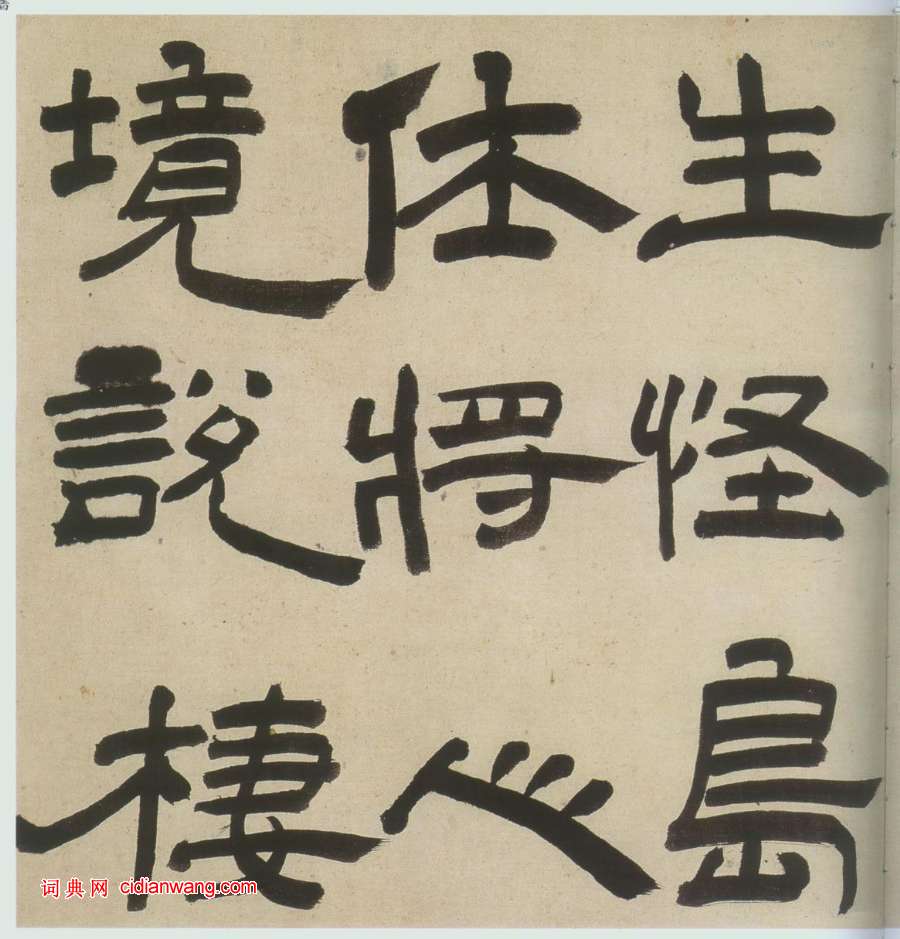 生怪島
体將心
境說棲
词典网 cidianwang.com